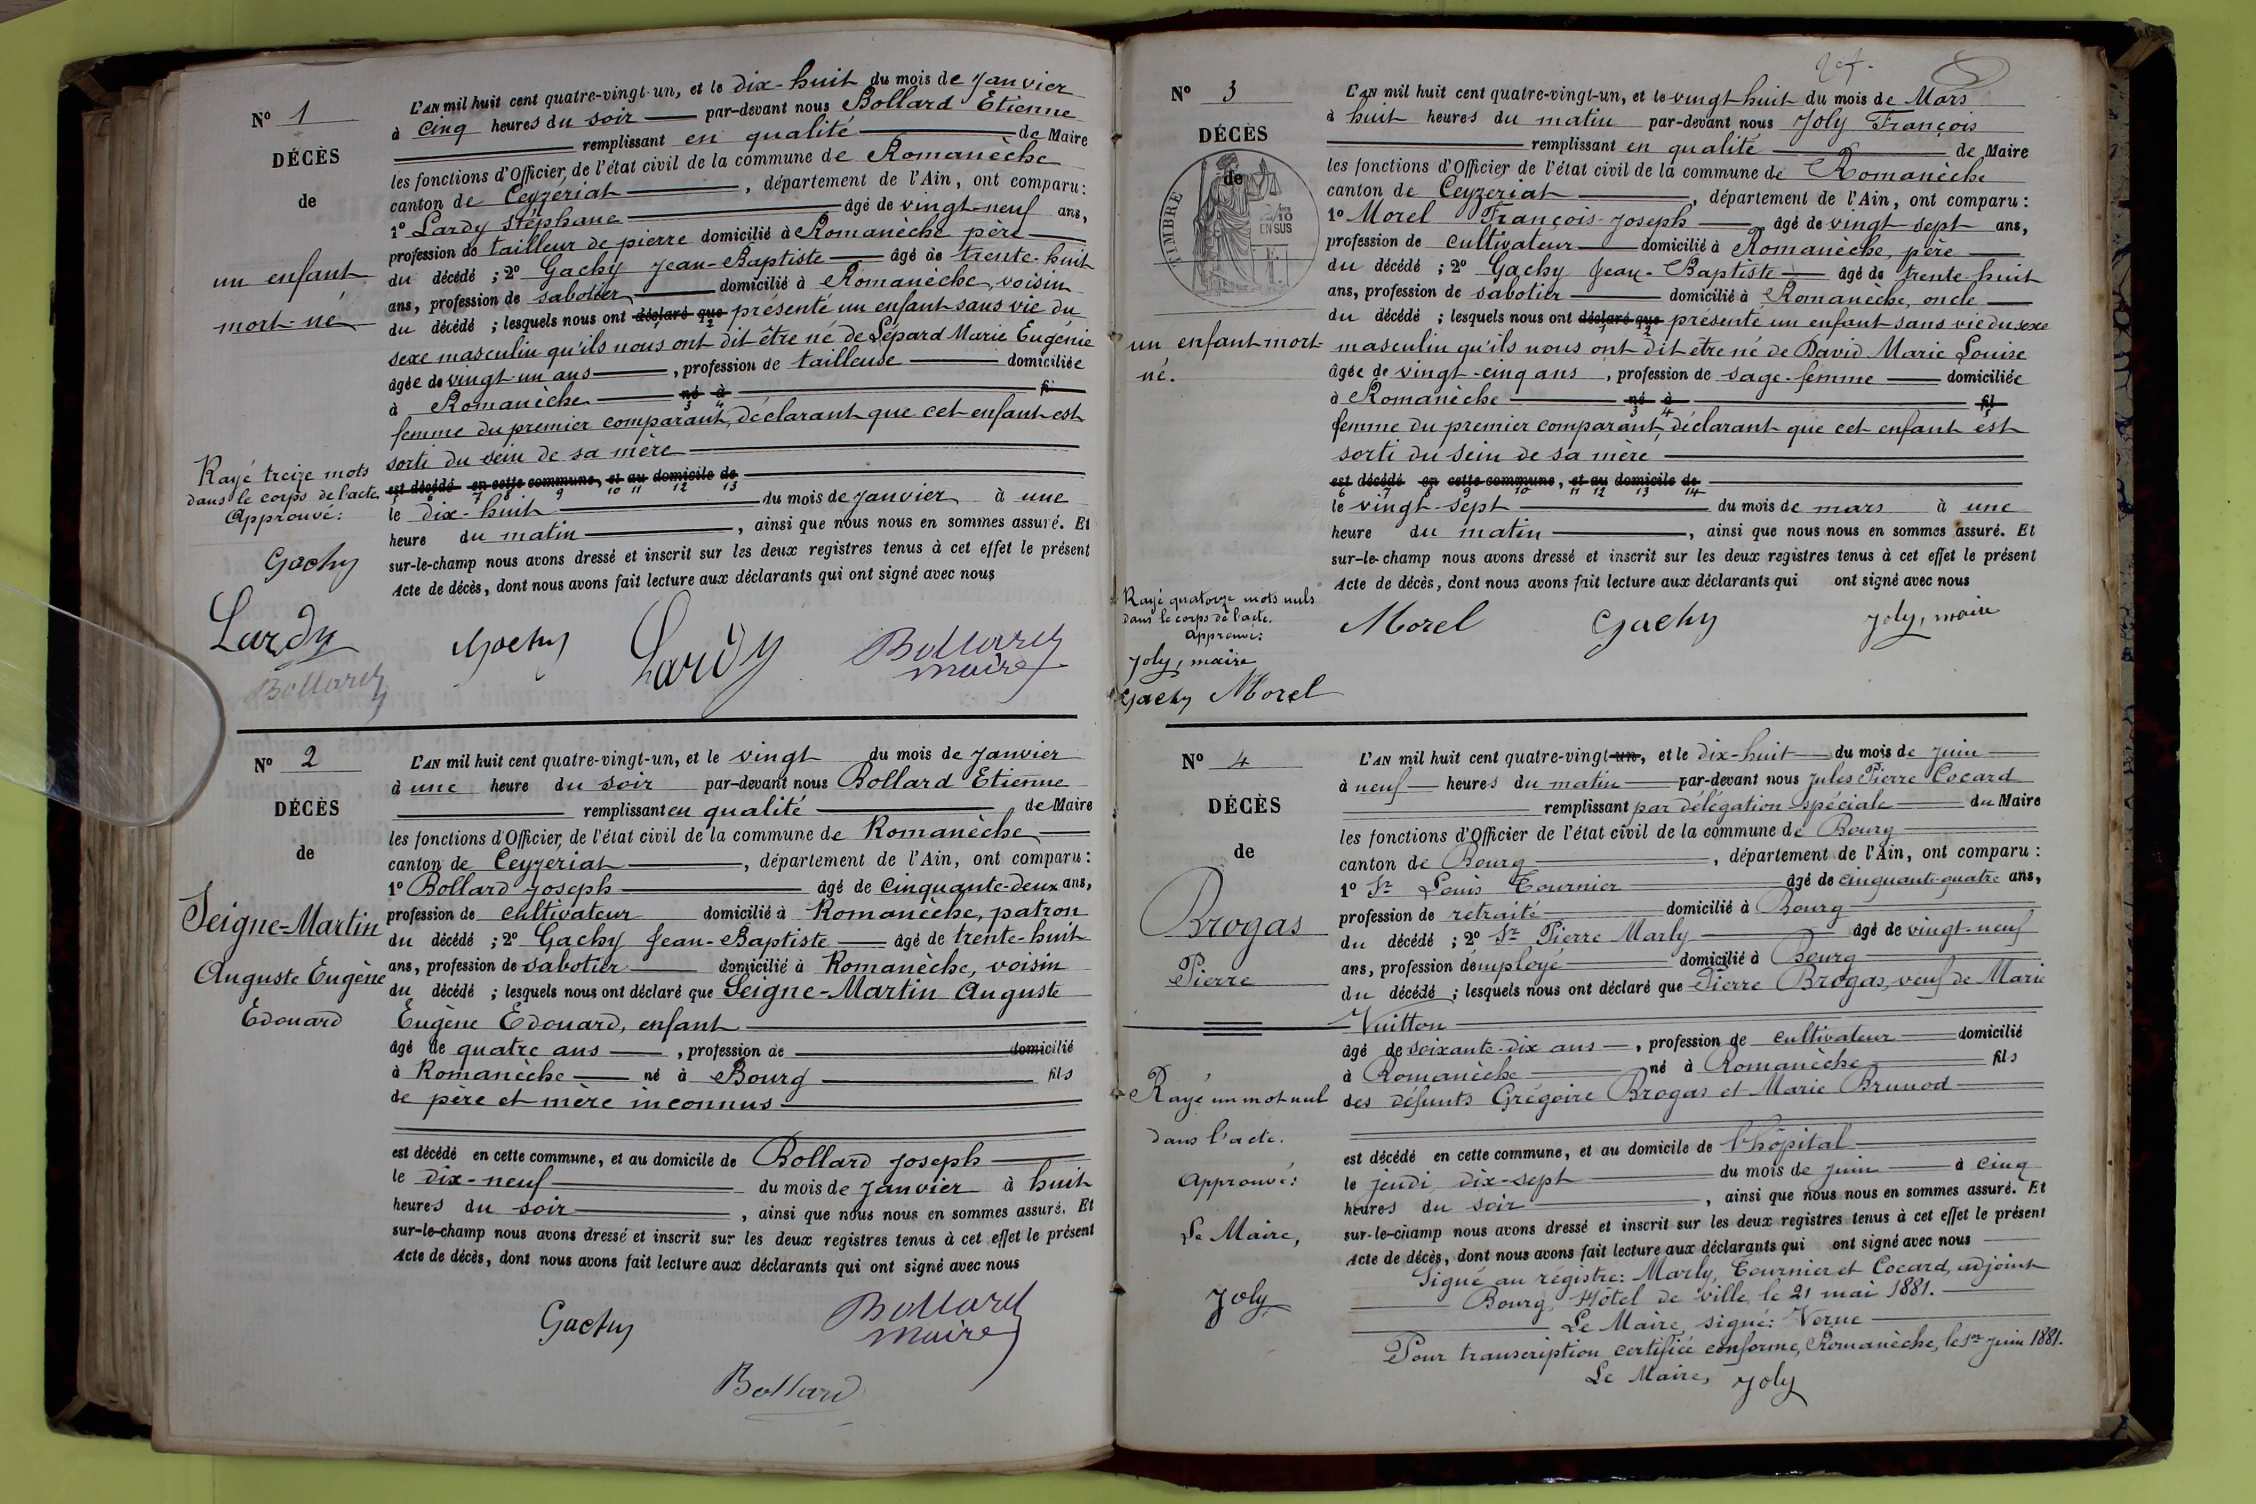 Nº 1
DÉCÈS
de
un enfant
mort-né
L'AN mil huit cent quatre-vingt-un, et le dix-huit du mois de Janvier
à cinq heures du soir par-devant nous Bollard Etienne
remplissant en qualité de Maire
les fonctions d'Officier de l'état civil de la commune de Romanèche
canton de Ceyzeriat, département de l'Ain, ont comparu:
1º Lardy Stéphane âgé de vingt-neuf ans,
profession de tailleur de pierre domicilié à Romanèche père
du décédé ; 2º Gachy Jean-Baptiste âgé de trente-huit
ans, profession de sabotier domicilié à Romanèche, voisin
du décédé ; lesquels nous ont déclaré que présenté un enfant sans vie du
1 2
sexe masculin qu'ils nous ont dit être né de Lépard Marie Eugénie
âgée de vingt-un ans, profession de tailleuse domiciliée
à Romanèche né à fi
3 4
femme du premier comparant, déclarant que cet enfant est
sorti du sein de sa mère
est décédé en cette commune, et au domicile de
5 6 7 8 9 10 11 12 13
le dix-huit du mois de Janvier à une
heure du matin, ainsi que nous nous en sommes assuré. Et
sur-le-champ nous avons dressé et inscrit sur les deux registres tenus à cet effet le présent
Acte de décès, dont nous avons fait lecture aux déclarants qui ont signé avec nous
Rayé treize mots
dans le corps de l'acte
Approuvé:
Gachy
Lardy
Bollard
Gachy Lardy Bollard
maire
Nº 2
DÉCÈS
de
Seigne-Martin
Auguste Eugène
Edouard
L'AN mil huit cent quatre-vingt-un, et le vingt du mois de Janvier
à une heure du soir par-devant nous Bollard Etienne
remplissant en qualité de Maire
les fonctions d'Officier de l'état civil de la commune de Romanèche
canton de Ceyzeriat, département de l'Ain, ont comparu:
1º Bollard Joseph âgé de cinquante-deux ans,
profession de cultivateur domicilié à Romanèche, patron
du décédé ; 2º Gachy Jean-Baptiste âgé de trente-huit
ans, profession de sabotier domicilié à Romanèche, voisin
du décédé ; lesquels nous ont déclaré que Seigne-Martin Auguste
Eugène Edouard, enfant
âgé de quatre ans, profession de domicilié
à Romanèche né à Bourg fils
de père et mère inconnus
est décédé en cette commune, et au domicile de Bollard Joseph
le dix-neuf du mois de Janvier à huit
heures du soir, ainsi que nous nous en sommes assuré. Et
sur-le-champ nous avons dressé et inscrit sur les deux registres tenus à cet effet le présent
Acte de décès, dont nous avons fait lecture aux déclarants qui ont signé avec nous
Gachy Bollard
maire
Bollard
Nº 3
DÉCÈS
de
TIMBRE
2/10
EN SUS
un enfant mort-
né.
L'AN mil huit cent quatre-vingt-un, et le vingt huit du mois de Mars
à huit heures du matin par-devant nous Joly François
remplissant en qualité de Maire
les fonctions d'Officier de l'état civil de la commune de Romanèche
canton de Ceyzeriat, département de l'Ain, ont comparu:
1º Morel François-Joseph âgé de vingt-sept ans,
profession de cultivateur domicilié à Romanèche, père
du décédé ; 2º Gachy Jean-Baptiste âgé de trente-huit
ans, profession de sabotier domicilié à Romanèche, oncle
du décédé ; lesquels nous ont déclaré que présenté un enfant sans vie du sexe
1 2
masculin qu'ils nous ont dit etre né de David Marie Louise
âgée de vingt-cinq ans, profession de sage-femme domiciliée
à Romanèche né à fil
3 4 5
femme du premier comparant, déclarant que cet enfant est
sorti du sein de sa mère
est décédé en cette commune, et au domicile de
6 7 8 9 10 11 12 13 14
le vingt-sept du mois de mars à une
heure du matin, ainsi que nous nous en sommes assuré. Et
sur-le-champ nous avons dressé et inscrit sur les deux registres tenus à cet effet le présent
Acte de décès, dont nous avons fait lecture aux déclarants qui ont signé avec nous
Rayé quatorze mots nuls
dans le corps de l'acte.
Approuvé:
Joly, maire
Gachy Morel
Morel Gachy Joly, maire
Nº 4
DÉCÈS
de
Brogas
Pierre
L'AN mil huit cent quatre-vingt-un, et le dix-huit du mois de Juin
à neuf heures du matin par-devant nous Jules Pierre Cocard
remplissant par délégation spéciale du Maire
les fonctions d'Officier de l'état civil de la commune de Bourg
canton de Bourg, département de l'Ain, ont comparu:
1º Sr Louis Tournier âgé de cinquante-quatre ans,
profession de retraité domicilié à Bourg
du décédé ; 2º Sr Pierre Marly âgé de vingt-neuf
ans, profession d'employé domicilié à Bourg
du décédé ; lesquels nous ont déclaré que Pierre Brogas, veuf de Marie
Vuitton
âgé de soixante-dix ans, profession de cultivateur domicilié
à Romanèche né à Romanèche fils
des défunts Grégoire Brogas et Marie Brunod
est décédé en cette commune, et au domicile de l'hôpital
le jeudi dix-sept du mois de Juin à cinq
heures du soir, ainsi que nous nous en sommes assuré. Et
sur-le-champ nous avons dressé et inscrit sur les deux registres tenus à cet effet le présent
Acte de décès, dont nous avons fait lecture aux déclarants qui ont signé avec nous
Signé au régistre: Marly, Tournier et Cocard, adjoint
Bourg, Hôtel de Ville, le 21 mai 1881.
Le Maire, signé: Verne
Pour transcription certifiée conforme, Romanèche, le 1er Juin 1881.
Le Maire, Joly
Rayé un mot nul
dans l'acte.
Approuvé:
Le Maire,
Joly